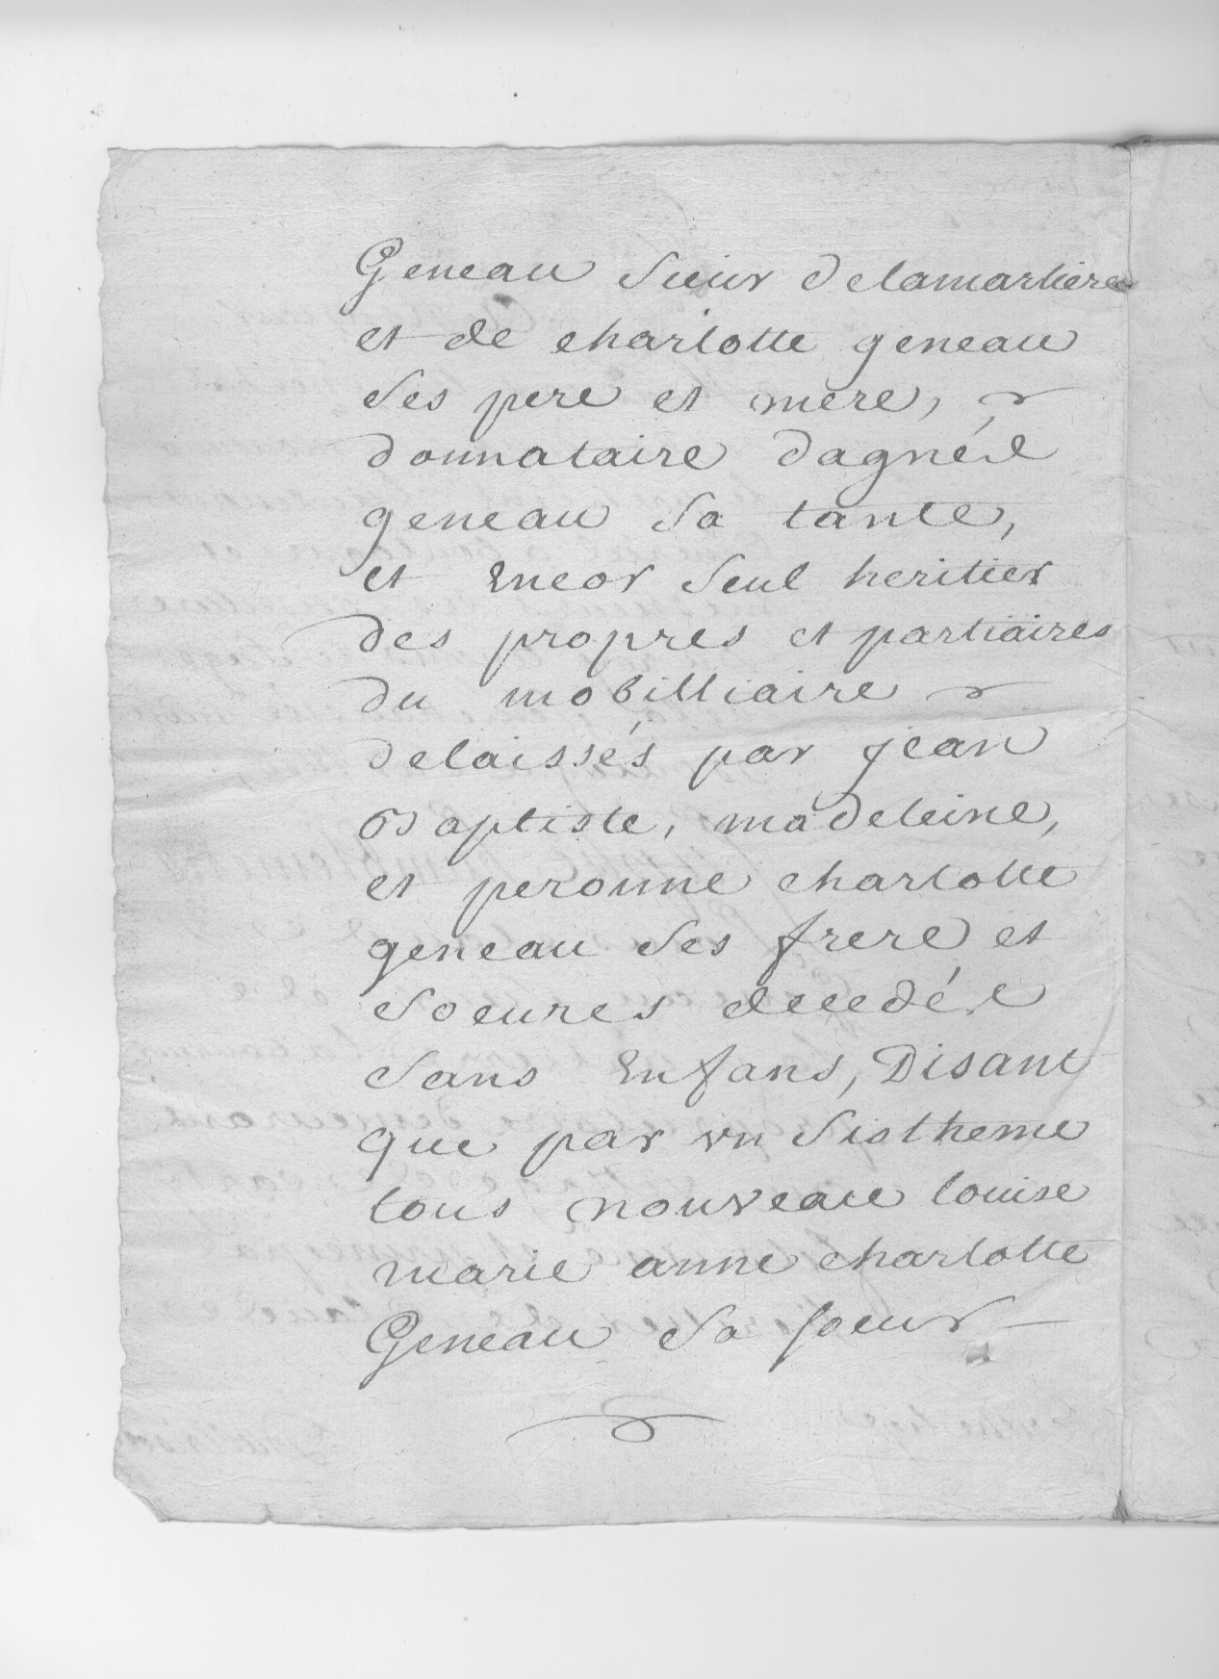 Geneau sieur delamartiere
et de charlotte geneau
ses pere et mere,
donnataire dagnée
geneau sa tante,
et Encor seul heritier
des propres et partiaires
du mobilliaire
delaissés par jean
Baptiste, madeleine,
et peronne charlotte
geneau ses frere et
soeures decedée
sans Enfans, Disant
que par vn sistheme
tous nouveau louise
marie anne charlotte
Geneau sa soeur